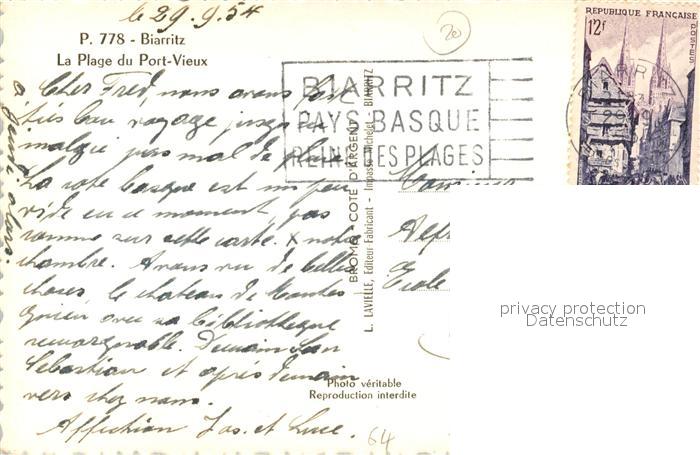 le 29.9.54
P. 778 - Biarritz
La Plage du Port-Vieux
20
RÉPUBLIQUE FRANÇAISE
12f
POSTES
BIARRITZ
PAYS BASQUE
REINE DES PLAGES
Cher Fred, nous avons fait
très bon voyage jusqu'ici
malgré pas mal de pluie
La côte basque est un peu
vide en ce moment, pas
comme sur cette carte. x notre
chambre. Avons vu de belles
choses, le château de
avec sa bibliothèque
remarquable. Demain San
Sebastian et après demain
vers chez nous.
Affection Jos. et Luce.
BROMER - COTE D'ARGENT
L. LAVIELLE, Editeur-Fabricant - Impasse Michelet - BIARRITZ
Monsieur
Ecole
privacy protection
Datenschutz
Photo véritable
Reproduction interdite
64